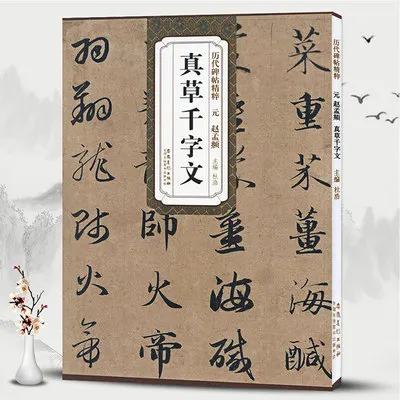 菜重芥薑海醎
薑海醎
師火帝
羽翔龍師火帝
历代碑帖精粹 元 赵孟頫 主编 杜浩
真草千字文
历代碑帖精粹 元 赵孟頫 真草千字文 主编 杜浩